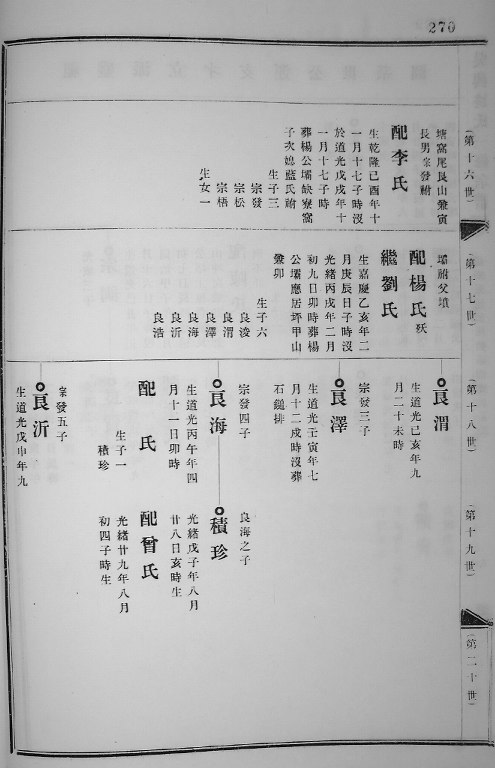 270
(第十六世)
塘窩尾艮山兼寅
長男宗發祔
配李氏
生乾隆己酉年十
一月十七子時沒
於道光戊戌年十
一月十七子時
葬楊公壩缺寮窩
子次媳藍氏祔
生子三
宗發
宗松
宗梧
生女一
(第十七世)
壩祔父墳
配楊氏殀
繼劉氏
生嘉慶乙亥年二
月庚辰日子時沒
光緒丙戌年二月
初九日卯時葬楊
公壩應居坪甲山
兼卯
生子六
良浚
良渭
良澤
良海
良沂
良浩
(第十八世)
良渭
生道光己亥年九
月二十未時
宗發三子
良澤
生道光壬寅年七
月十二戌時沒葬
石鎚排
宗發四子
良海
生道光丙午年四
月十一日卯時
配 氏
生子一
積珍
宗發五子
良沂
生道光戊申年九
(第十九世)
良海之子
積珍
光緒戊子年八月
廿八日亥時生
配曾氏
光緒廿九年八月
初四子時生
(第二十世)